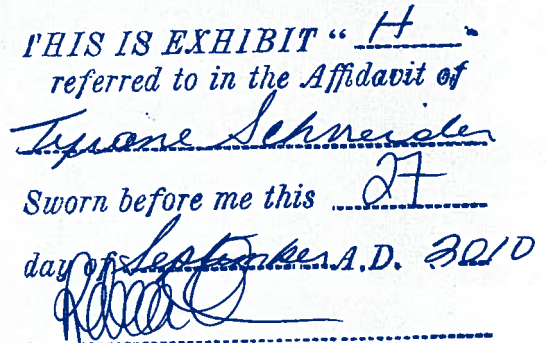 THIS IS EXHIBIT " H "
referred to in the Affidavit of
Schneider
Sworn before me this 27
day of September A.D. 2010